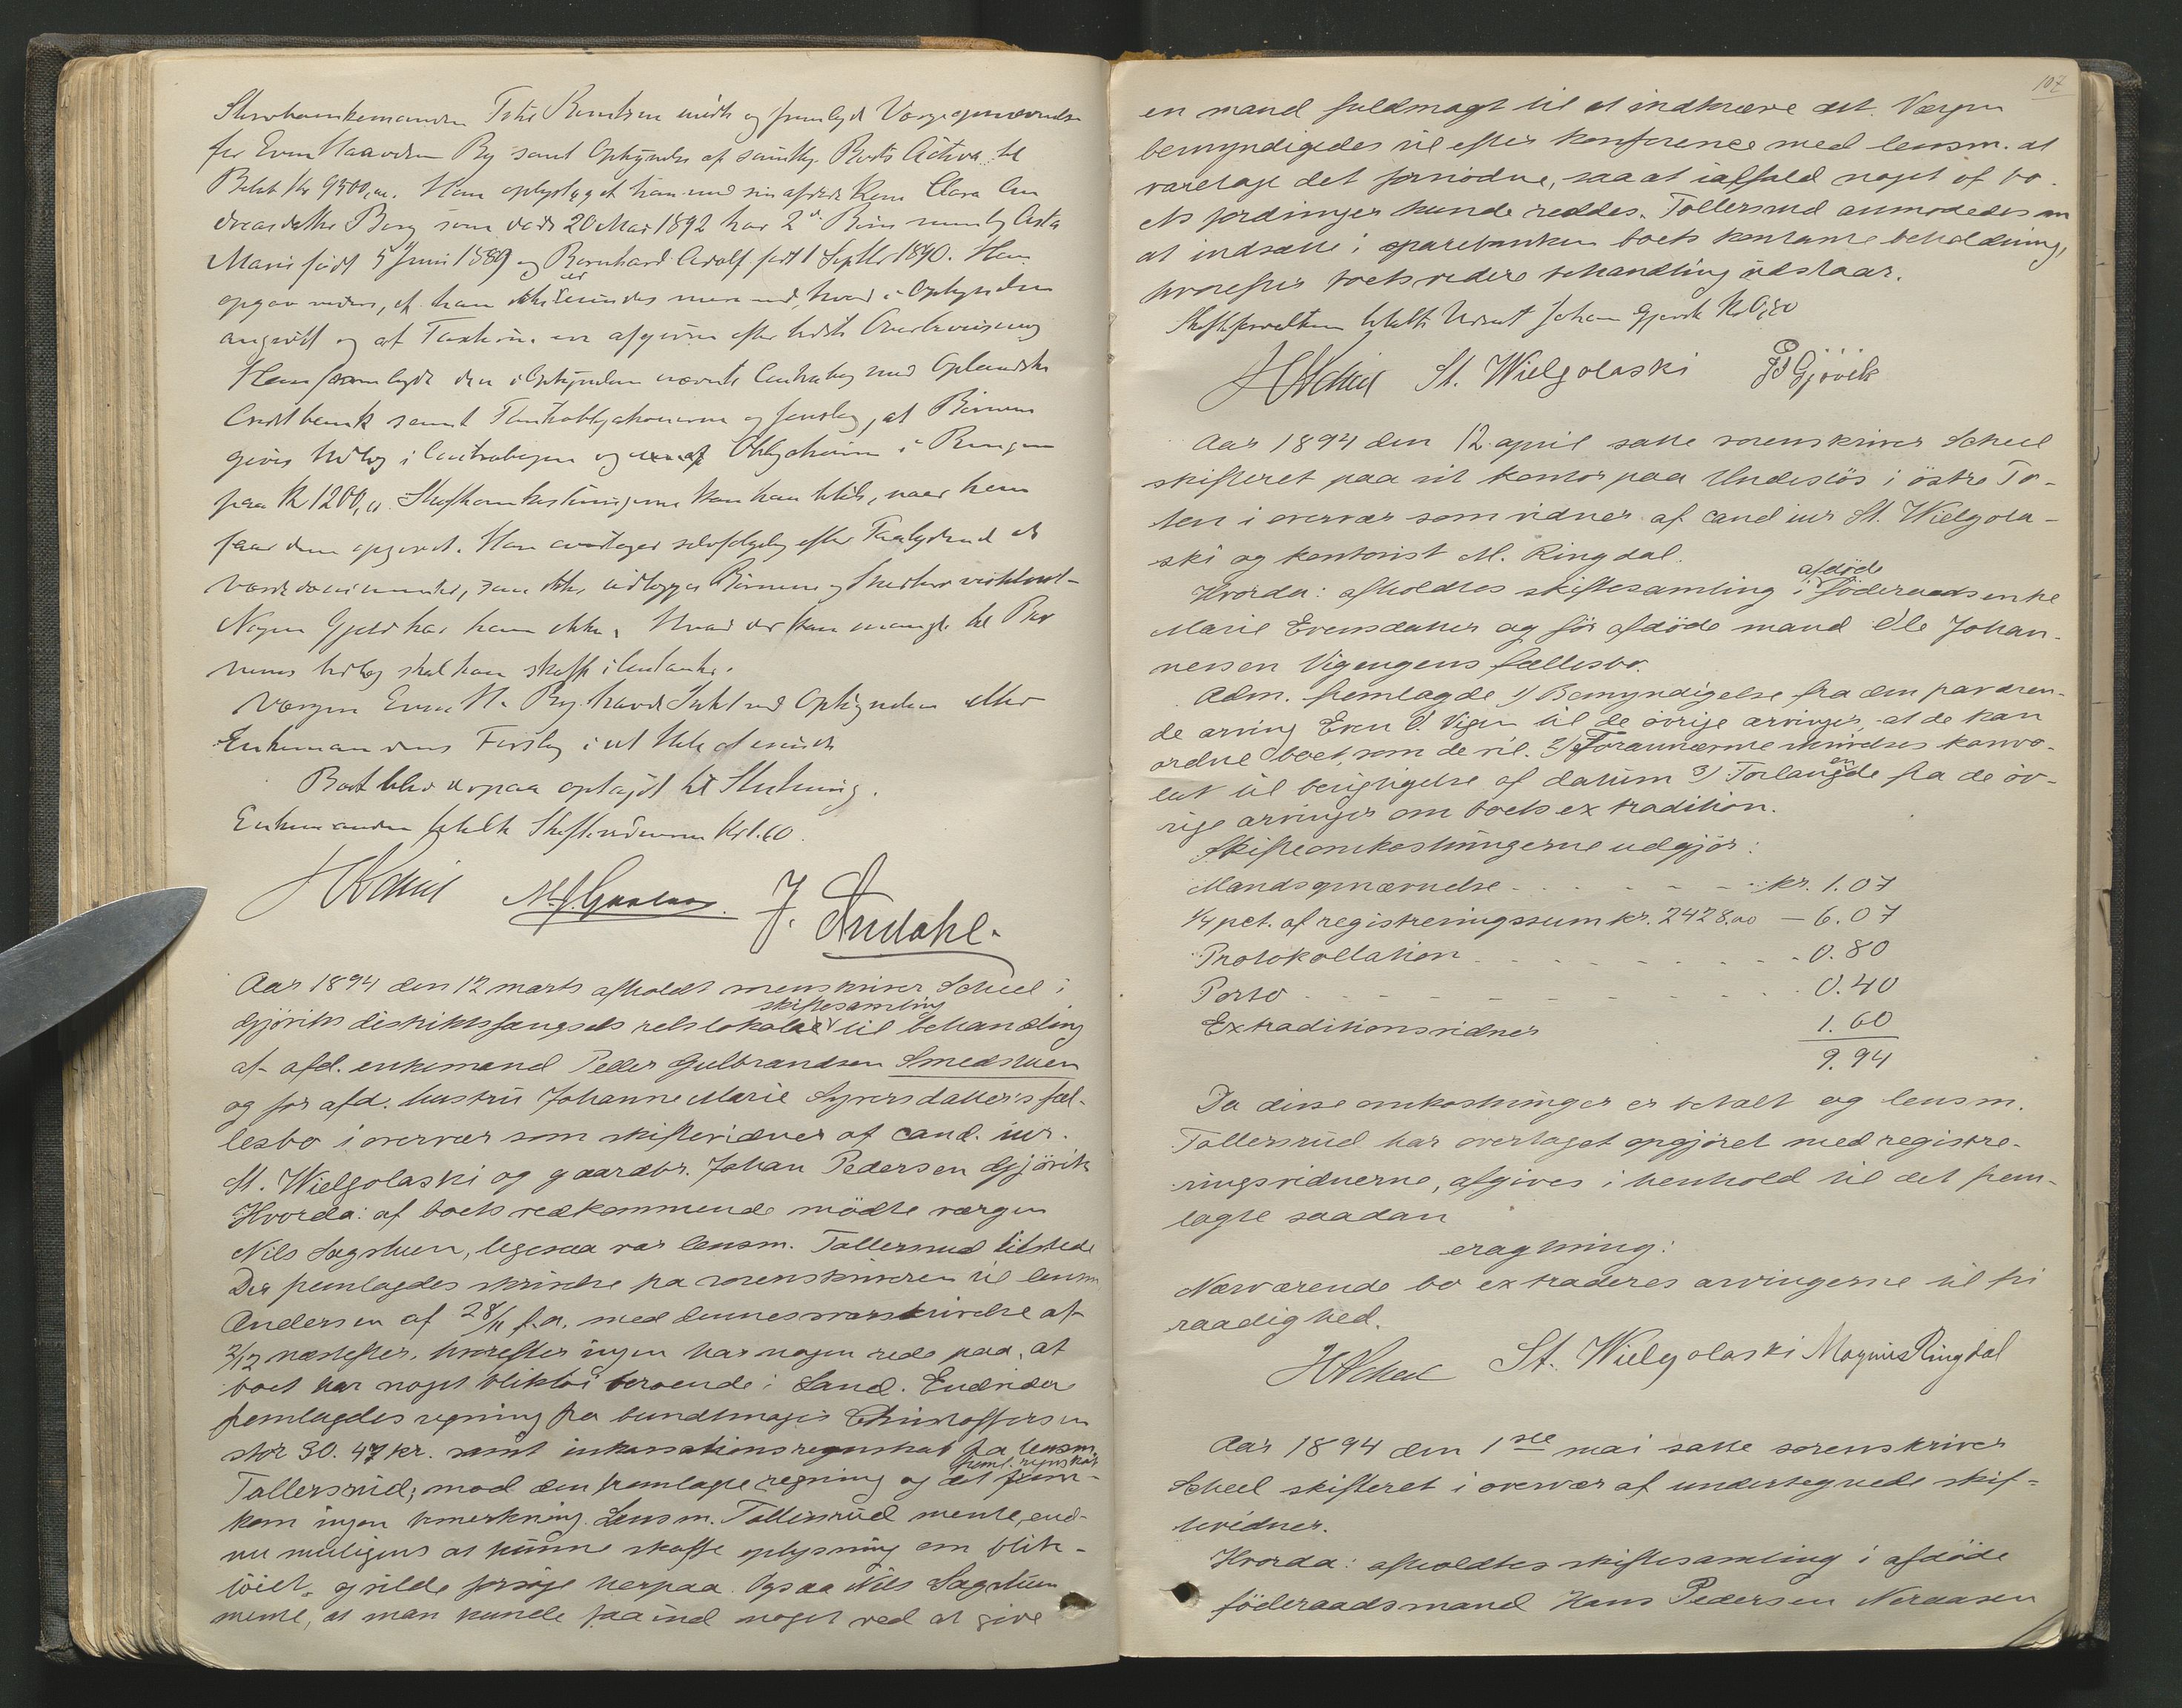 for Even Haavelsen By samt Opskynder af samtlige Boets Activa til
Beløb Kr 9500,00. Han oplyste, at han med sin afdøde Kone Clara An
dreasdatter Berg som døde 20 Mai 1892 har 2de Børn nemlig Asta
Marie født 5 Juni 1889 og Bernhard Adolf født 1 Septbr 1890. Han
opgav videre, at han ikke eiendes mere end, hvad i Opskynden
angivet og at Taxten er afgiven efter bedste Overbevisning
Han fremlagde den i Opskynden nævnte Contrabog med Oplandske
Creditbank samt Panteobligationerne og foreslog, at Børnene
gives Udlæg i Contrabogen og Obligationen i Ringen
paa Kr 1200,00. Skifteomkostningerne kan han betale, naar han
faar dem opgivet. Han overtager selvfølgelig efter Faalydende de
Værdidocumenter, som ikke udlægges Børnene
Nogen Gjeld har han ikke. Hvad der kan mangle til Bør
nenes Udlæg skal han skaffe i Contanter.
Værgen Even H. By havde Intet ved Opskynden eller
Enkemandens Forslag i et og Alt at erindre
Boet blev derpaa optaget til Slutning.
Enkemanden betalte Skiftevidnerne Kr 1.60.
HScheel J. Andahl.
Aar 1894 den 12 marts afholdt sorenskriver Scheel i
skiftesamling
Gjøviks distriktsfængsels retslokale til behandling
af afd. enkemand Peder Gulbrandsen Smedstuen
og før afd. hustru Johanne Marie Syversdatter's fæl-
lesbo i overvær som skiftevidner af cand. iur.
St. Wielgolaski og gaardbr. Johan Pedersen Gjøvik
Hvorda: af boets vedkommende mødte værgen
Nils Sagstuen, ligesaa var lensm. Tollersrud tilstede
Der fremlagdes skrivelse fra sorenskriveren til lensm
Andersen af 28/11 f. a. med dennes svarskrivelse af
2/12 næstefter, hvorefter ingen har nogen rede paa, at
boet har noget bliktøi beroende i Land. Endvidere
fremlagdes regning fra bundtmager Christoffersen
stor 30.47 kr. samt inkassationsregnskab fra lensm.
freml. regnskab
Tollersrud; mod den fremlagte regning og det frem-
kom ingen bemerkning. Lensm. Tollersrud mente, end-
nu muligens at kunne skaffe oplysning om blik-
tøiet, og vilde forsøge herpaa. Ogsaa Nils Sagstuen
mente, at man kunde faa ind noget ved at give
107
en mand fuldmagt til at indkræve det. Værgen
bemyndigedes til efter konference med lensm. at
varetage det fornødne, saa at ialfald noget af bo-
ets fordringer kunde reddes. Tollersrud anmodedes om
at indsætte i sparebanken boets kontante beholdning,
hvorefter boets videre behandling udstaar.
Skifteforvalteren betalte Vidnet Johan Gjøvik Kr 0,80
HScheel St. Wielgolaski JPGjövik
Aar 1894 den 12. april satte sorenskriver Scheel
skifteret paa sit kontor paa Undeslös i östre To-
ten i overvær som vidner af cand iur St. Wielgola-
ski og kontorist M. Ringdal.
afdöde
Hvorda: afholdtes skiftesamling i föderaadsenke
Marie Evensdatter og för afdöde mand Ole Johan-
nessen Vigengens fællesbo.
Adm. fremlagde 1) Bemyndigelse fra den fraværen-
de arving Even O. Vigen til de övrige arvinger, at de kan
ordne boet, som de vil. 2) Forannævnte skrivelses konvo-
lut til berigtigelse af datum 3) Forlangende fra de öv-
rige arvinger om boets extradition.
Skifteomkostningerne udgjör:
Mandsopnævnelse - - - - kr. 1.07
1/4 pct. af registreringssum kr. 2428.00 - 6.07
Protokollation - - - - 0.80
Porto - - - - 0.40
Extraditionsvidner 1.60
9.94
Da disse omkostninger er betalt og lensm.
Tollersrud har overtaget opgjöret med registre-
ringsvidnerne, afgives i henhold til det frem-
lagte saadan
eragtning:
Nærværende bo extraderes arvingerne til fri
raadighed.
HScheel St. Wielgolaski Magnus Ringdal
Aar 1894 den 1ste mai satte sorenskriver
Scheel skifteret i overvær af undertegnede skif-
tevidner.
Hvorda: afholdtes skiftesamling i afdöde
föderaadsmand Hans Pedersen Neraasen